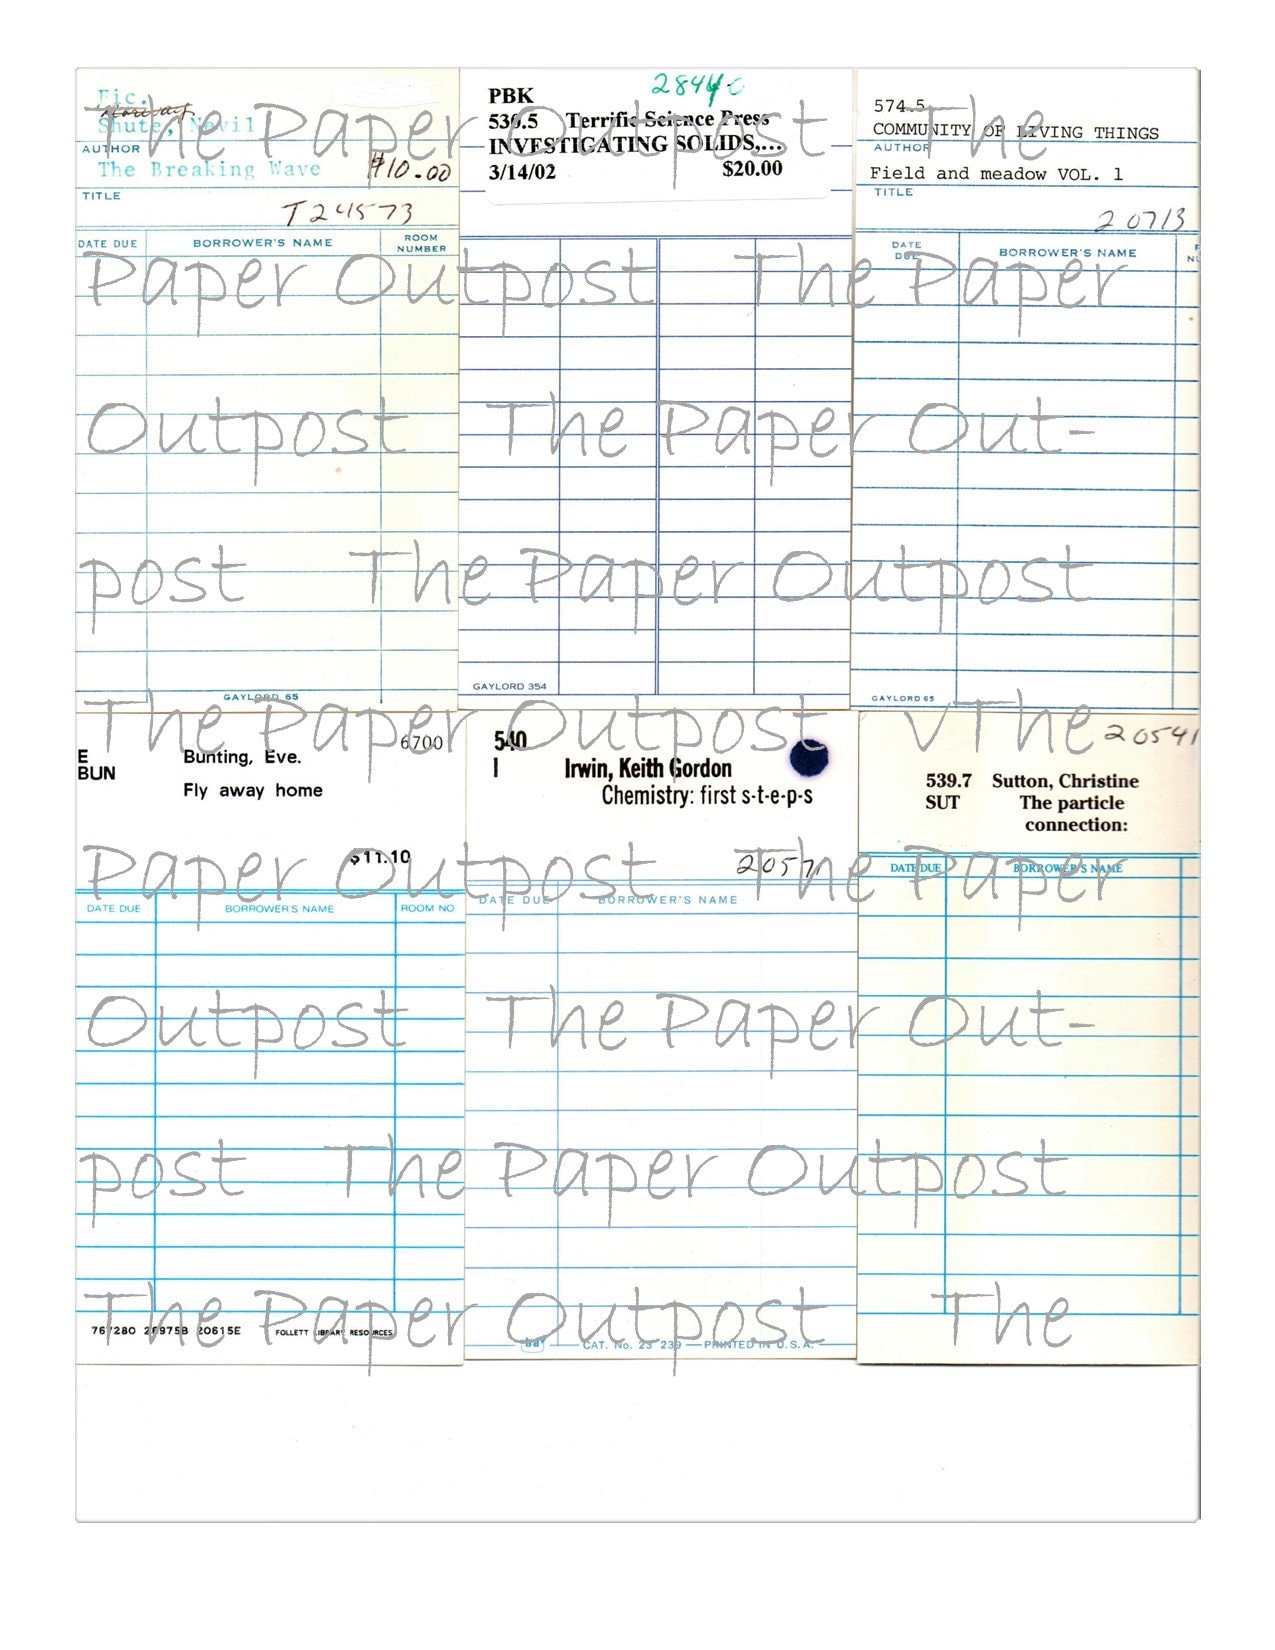 Fic.
Shute, Nevil
AUTHOR
The Breaking Wave $10.00
TITLE
T24573
DATE DUE BORROWER'S NAME ROOM NUMBER
GAYLORD 65
PBK
530.5 Terrific Science Press
INVESTIGATING SOLIDS,...
3/14/02 $20.00
GAYLORD 354
574.5
COMMUNITY OF LIVING THINGS
AUTHOR
Field and meadow VOL. 1
TITLE
20713
DATE DUE BORROWER'S NAME
GAYLORD 65
E 6700
BUN Bunting, Eve.
Fly away home
$11.10
DATE DUE BORROWER'S NAME ROOM NO.
767280 2B975B 20615E FOLLETT LIBRARY RESOURCES
540
I Irwin, Keith Gordon
Chemistry: first s-t-e-p-s
2057
DATE DUE BORROWER'S NAME
CAT. No. 23 239 PRINTED IN U.S.A.
20541
539.7 Sutton, Christine
SUT The particle
connection:
DATE DUE BORROWER'S NAME
The Paper Outpost The
Paper Outpost The Paper
Outpost The Paper Out-
post The Paper Outpost
The Paper Outpost VThe
Paper Outpost The Paper
Outpost The Paper Out-
post The Paper Outpost
The Paper Outpost The